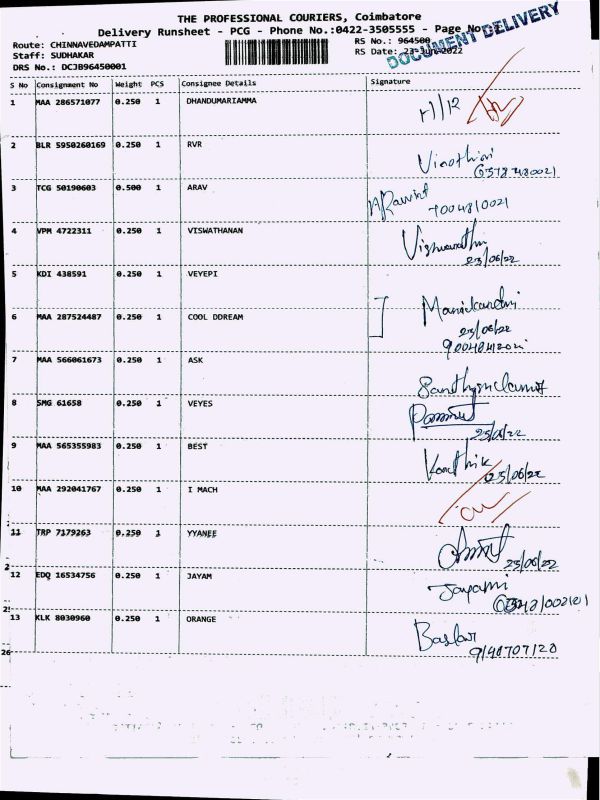 THE PROFESSIONAL COURIERS, Coimbatore
Delivery Runsheet - PCG - Phone No.:0422-3505555 - Page No
DOCUMENT DELIVERY
Route: CHINNAVEDAMPATTI
RS No.: 964500
Staff: SUDHAKAR
RS Date: 23-Jun-2022
DRS No.: DCJB96450001
S No Consignment No Weight PCS Consignee Details Signature
1 MAA 286571077 0.250 1 DHANDUMARIAMMA
2 BLR 5950260169 0.250 1 RVR
3 TCG 50190603 0.500 1 ARAV
4 VPM 4722311 0.250 1 VISWATHANAN
23/06/22
5 KDI 438591 0.250 1 VEYEPI
6 MAA 287524487 0.250 1 COOL DDREAM
23/06/22
7 MAA 566061673 0.250 1 ASK
8 SMG 61658 0.250 1 VEYES
23/06/22
9 MAA 565355983 0.250 1 BEST Karthik
23/06/22
10 MAA 292041767 0.250 1 I MACH
11 TRP 7179263 0.250 1 YYANEE
23/06/22
12 EDQ 16534756 0.250 1 JAYAM
13 KLK 8030960 0.250 1 ORANGE